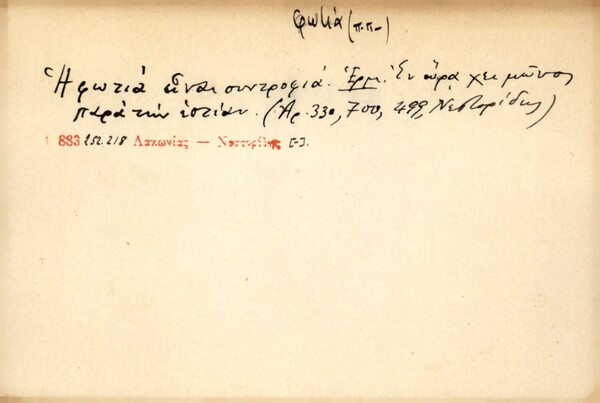 φωτιά (π.π-)
Ἡ φωτιά εἶναι συντροφιά. Ἑρμ. Ἐν ὥρᾳ χειμῶνος
παρά τήν ἑστίαν. (Ἀρ. 330, 700, 499, Νεστορίδης)
883 252.218 Λακωνίας — Νεστορίδης